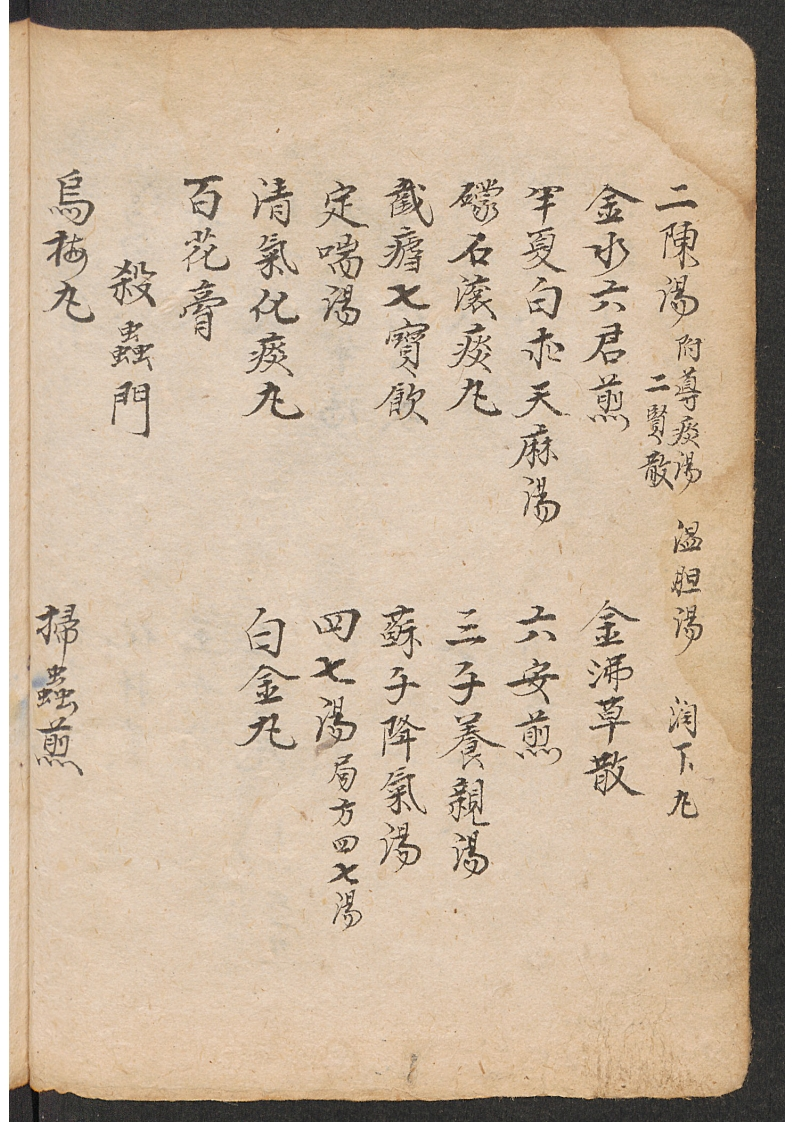 二陳湯 附導痰湯 二賢散 温胆湯 润下丸
金水六君煎 金沸草散
半夏白朮天麻湯 六安煎
礞石滚痰丸 三子養親湯
截瘧七寶飲 蘇子降氣湯
定喘湯 四七湯 局方四七湯
清氣化痰丸 白金丸
百花膏
殺蟲門
烏梅丸 掃蟲煎